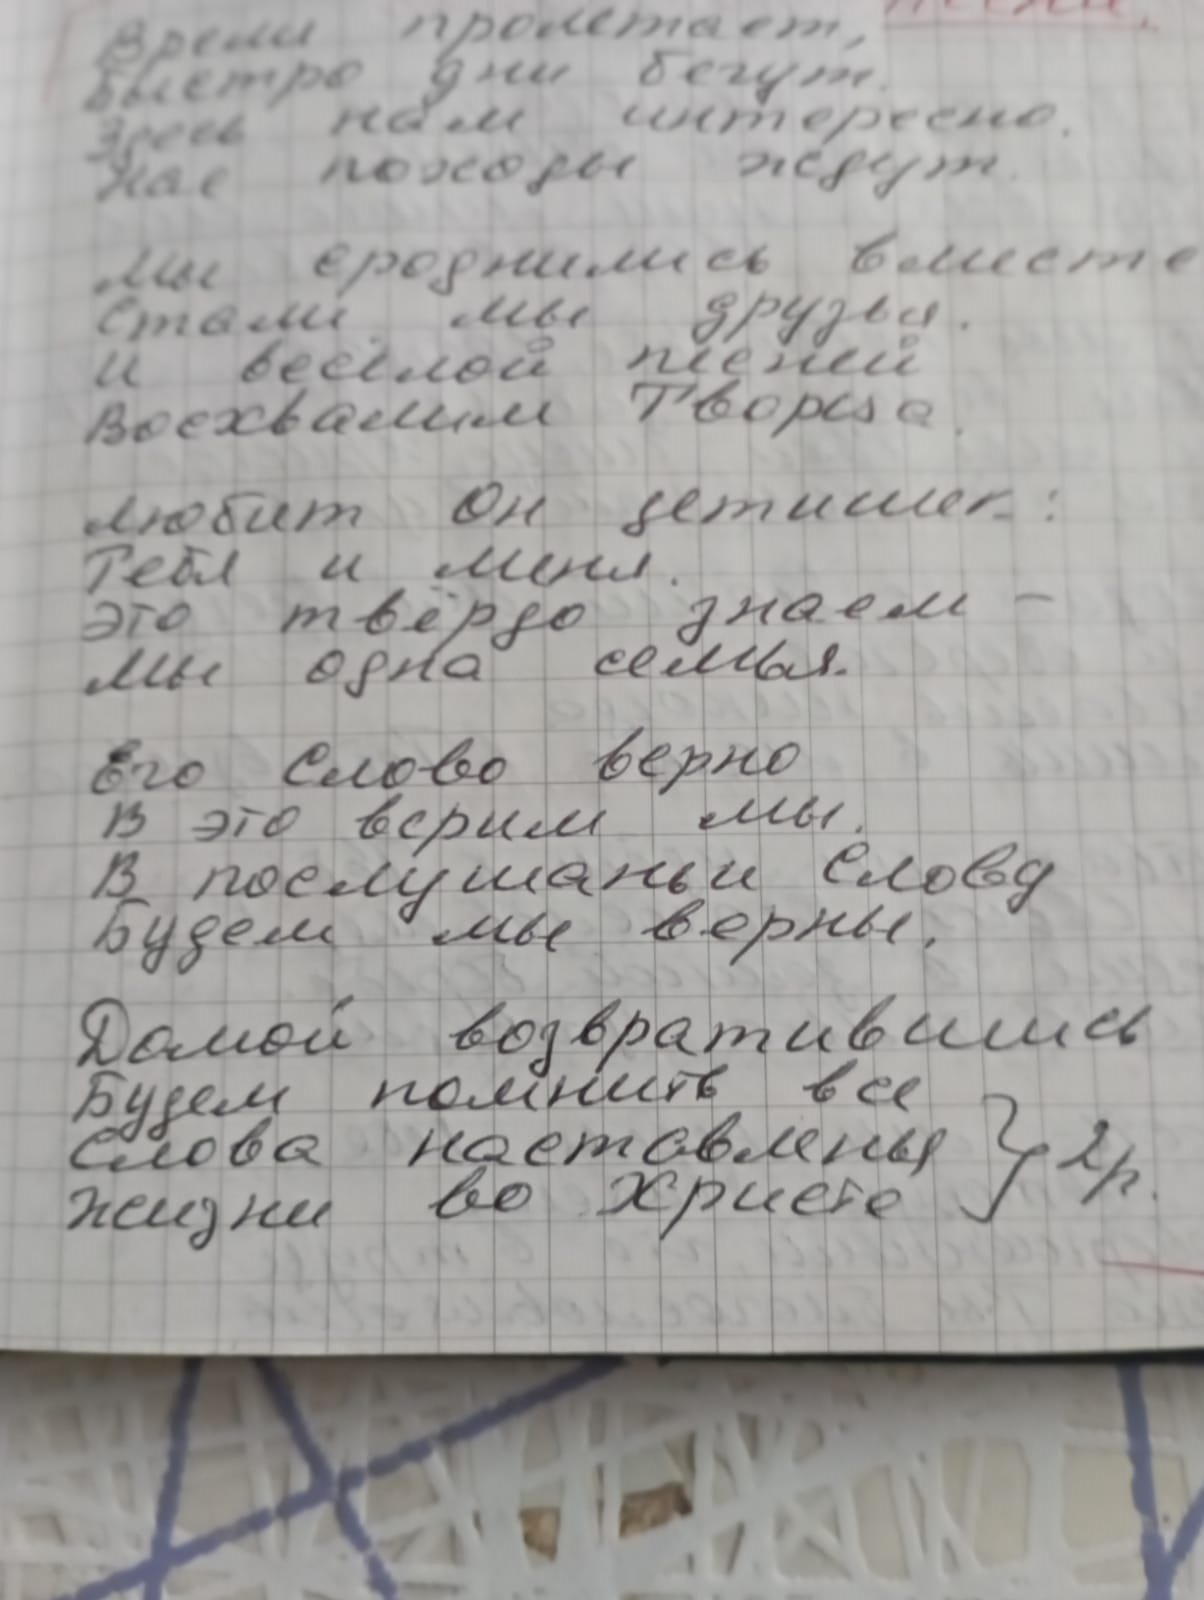 Время пролетает,
Быстро дни бегут.
Здесь нам интересно.
Нас походы ждут.
Мы сроднились вместе
Стали мы друзья.
И весёлой песней
Восхвалим Творца.
Любит Он детишек:
Тебя и меня.
Это твёрдо знаем –
Мы одна семья.
Его Слово верно
В это верим мы.
В послушаньи Слову
Будем мы верны.
Домой возвратившись
Будем помнить все
Слова наставленья
Жизни во Христе } 2р.